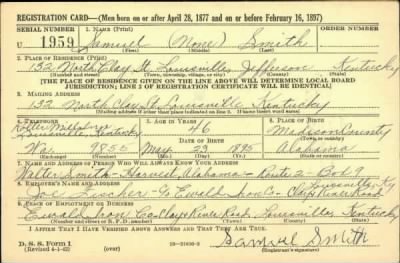 REGISTRATION CARD—(Men born on or after April 28, 1877 and on or before February 16, 1897)
SERIAL NUMBER 1. NAME (Print)
U 1959 Samuel (None) Smith
(First) (Middle) (Last)
2. PLACE OF RESIDENCE (Print)
132 North Clay St. Louisville, Jefferson Kentucky
(Number and street) (Town, township, village, or city) (County) (State)
[THE PLACE OF RESIDENCE GIVEN ON THE LINE ABOVE WILL DETERMINE LOCAL BOARD
JURISDICTION; LINE 2 OF REGISTRATION CERTIFICATE WILL BE IDENTICAL]
3. MAILING ADDRESS
132 North Clay St. Louisville Kentucky
[Mailing address if other than place indicated on line 2. If same insert word same]
4. TELEPHONE 5. AGE IN YEARS 6. PLACE OF BIRTH
Louisville Kentucky 46 Madison County
DATE OF BIRTH
Wa. 9855 May 23 1895 Alabama
(Exchange) (Number) (Mo.) (Day) (Yr.) (State or country)
7. NAME AND ADDRESS OF PERSON WHO WILL ALWAYS KNOW YOUR ADDRESS
Walter Smith - Harvest, Alabama - Route 2 - Box 9
8. EMPLOYER'S NAME AND ADDRESS Louisville Ky
Joe Fischer - Ewald Iron Co - Clay & River Road
9. PLACE OF EMPLOYMENT OR BUSINESS
Ewald Iron Co - Clay & River Road, Louisville, Kentucky
(Number and street or R. F. D. number) (Town) (County) (State)
I AFFIRM THAT I HAVE VERIFIED ABOVE ANSWERS AND THAT THEY ARE TRUE.
Samuel Smith
D. S. S. Form 1
(Revised 4-1-42) (over) (Registrant's signature)